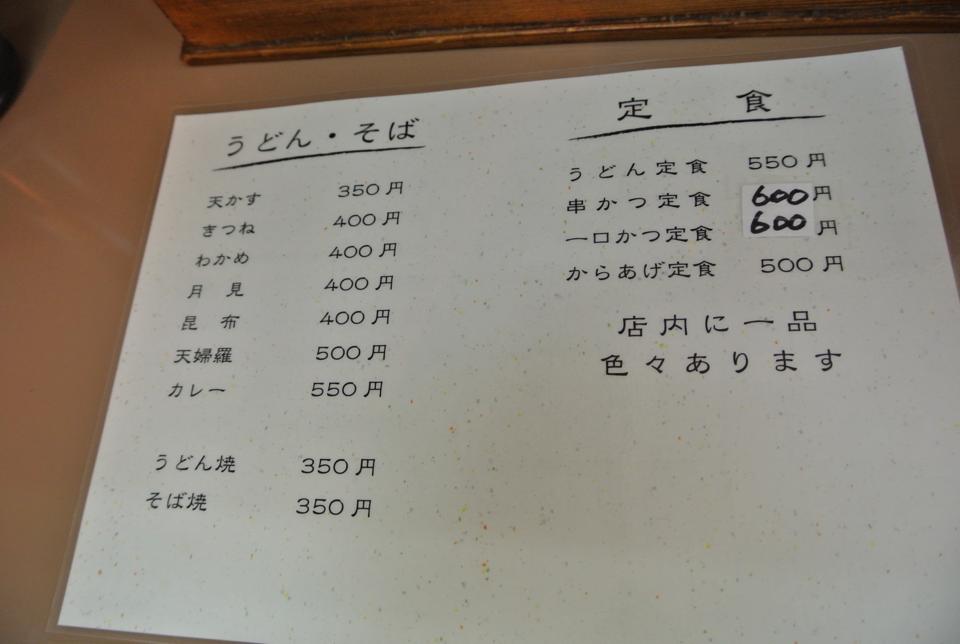 うどん・そば
天かす 350円
きつね 400円
わかめ 400円
月見 400円
昆布 400円
天婦羅 500円
カレー 550円
うどん焼 350円
そば焼 350円
定食
うどん定食 550円
串かつ定食 600円
一口かつ定食 600円
からあげ定食 500円
店内に一品
色々あります